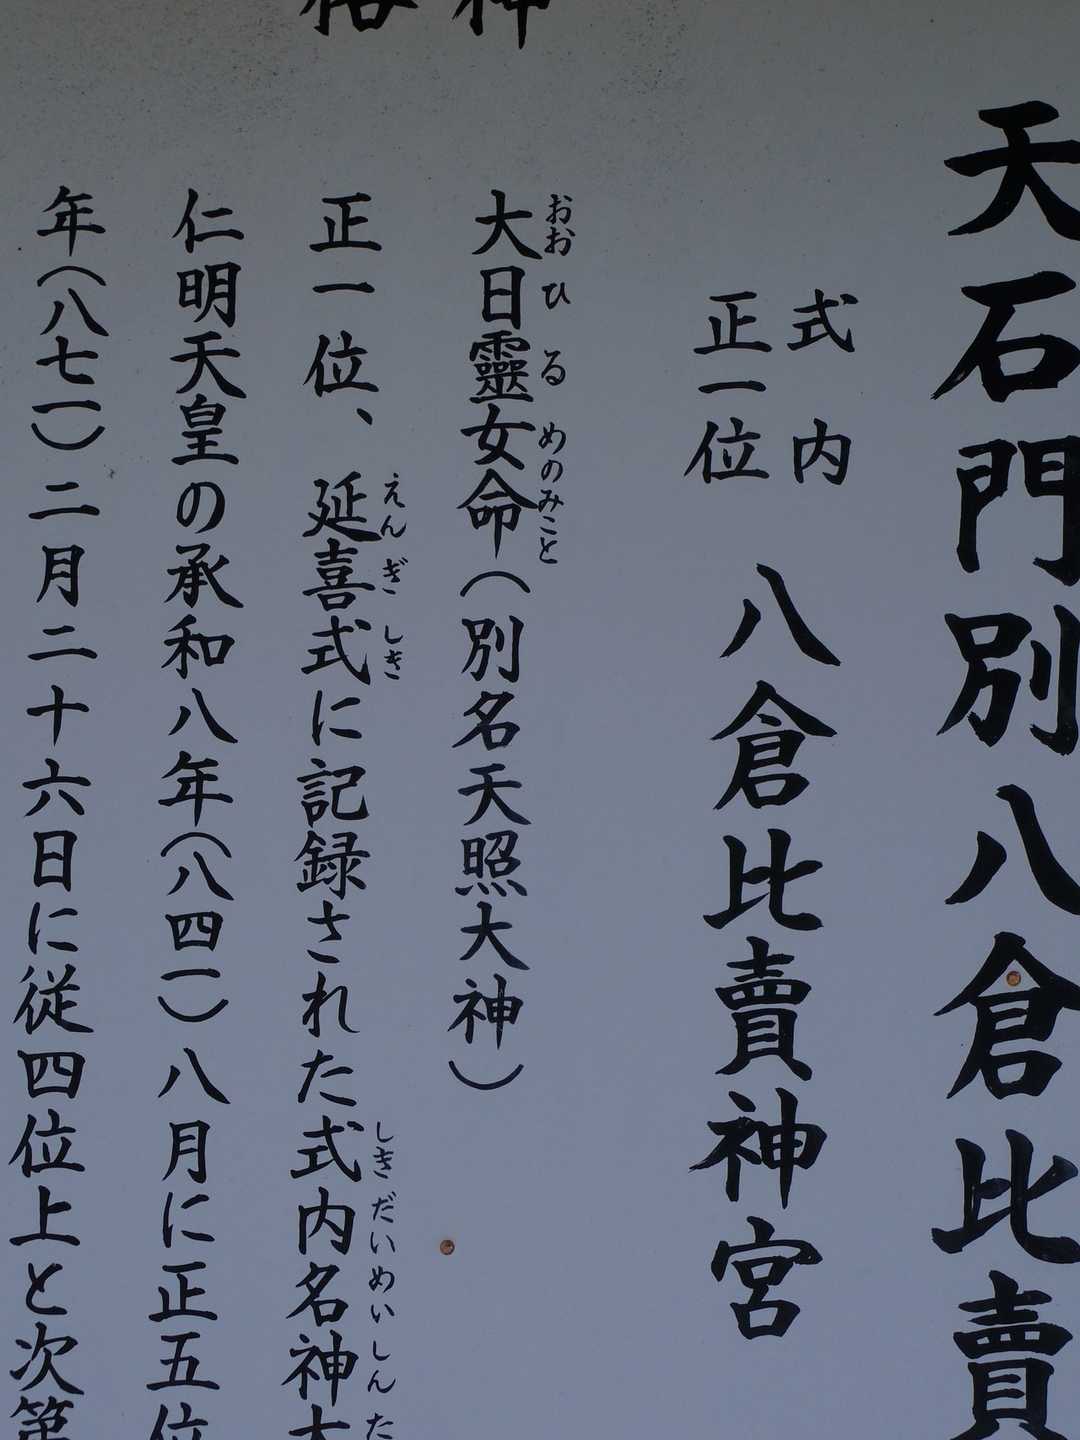 天石門別八倉比賣
式内
正一位
八倉比賣神宮
大日靈女命（別名天照大神）
おおひるめのみこと
正一位、延喜式に記録された式内名神大
えんぎしき
しきだいめいしんた
仁明天皇の承和八年（八四一）八月に正五位
年（八七一）二月二十六日に従四位上と次第